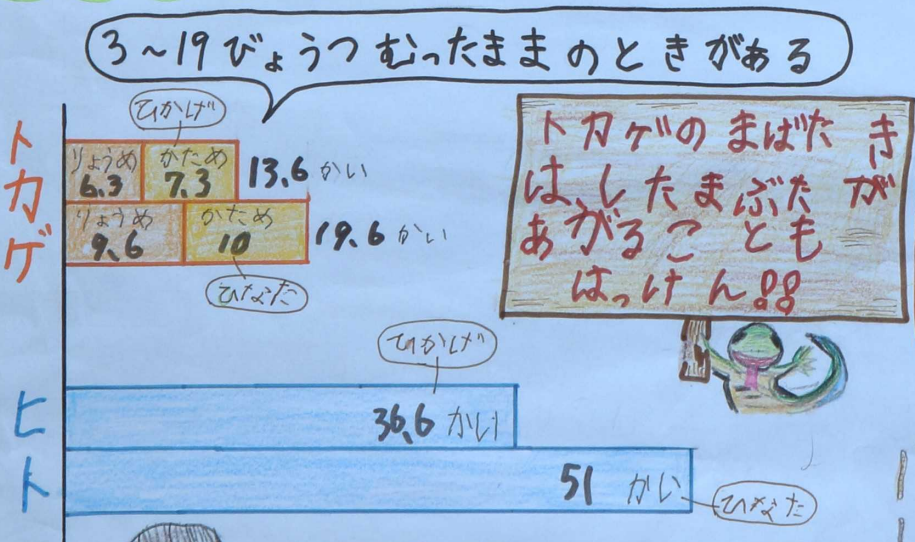 3〜19びょうつむったままのときがある
ひかげ
トカゲ
りょうめ かため
6.3 7.3 13.6 かい
りょうめ かため
9.6 10 19.6 かい
ひなた
トカゲのまばたき
は、したまぶたが
あがることも
はっけん!!
ヒト
ひかげ
36.6 かい
51 かい
ひなた